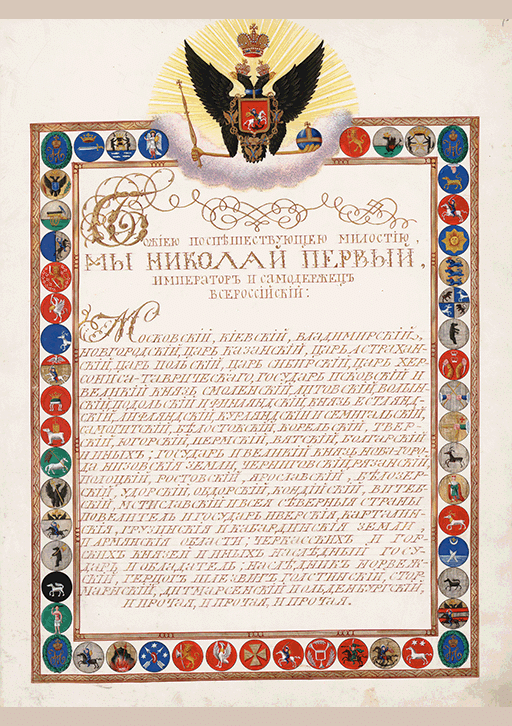 Божіею поспѣшествующею милостію,
МЫ НИКОЛАЙ ПЕРВЫЙ,
ИМПЕРАТОРЪ И САМОДЕРЖЕЦЪ
ВСЕРОССІЙСКІЙ:
Московскій, Кіевскій, Владимирскій,
Новгородскій, Царь Казанскій, Царь Астрахан-
скій, Царь Польскій, Царь Сибирскій, Царь Хер-
сониса-Таврическаго, Государь Псковскій и
Великій Князь Смоленскій, Литовскій, Волын-
скій, Подольскій и Финляндскій, Князь Естлянд-
скій, Лифляндскій, Курляндскій и Семигальскій,
Самогитскій, Бѣлостокскій, Корельскій, Твер-
скій, Югорскій, Пермскій, Вятскій, Болгарскій
и иныхъ; Государь и Великій Князь Новагоро-
да Низовскія земли, Черниговскій, Рязанскій
Полоцкій, Ростовскій, Ярославскій, Бѣлозер-
скій, Удорскій, Обдорскій, Кондійскій, Витеб-
скій, Мстиславскій и всея Сѣверныя страны
Повелитель и Государь Иверскія, Карталин-
скія, Грузинскія и Кабардинскія земли
и Арменскія Области; Черкасскихъ и Гор-
скихъ Князей и иныхъ Наслѣдный Госу-
дарь и Обладатель; Наслѣдникъ Норвеж-
скій, Герцогъ Шлезвигъ Голстинскій, Стор-
марнскій, Дитмарсенскій и Ольденбургскій,
и прочая, и прочая, и прочая.